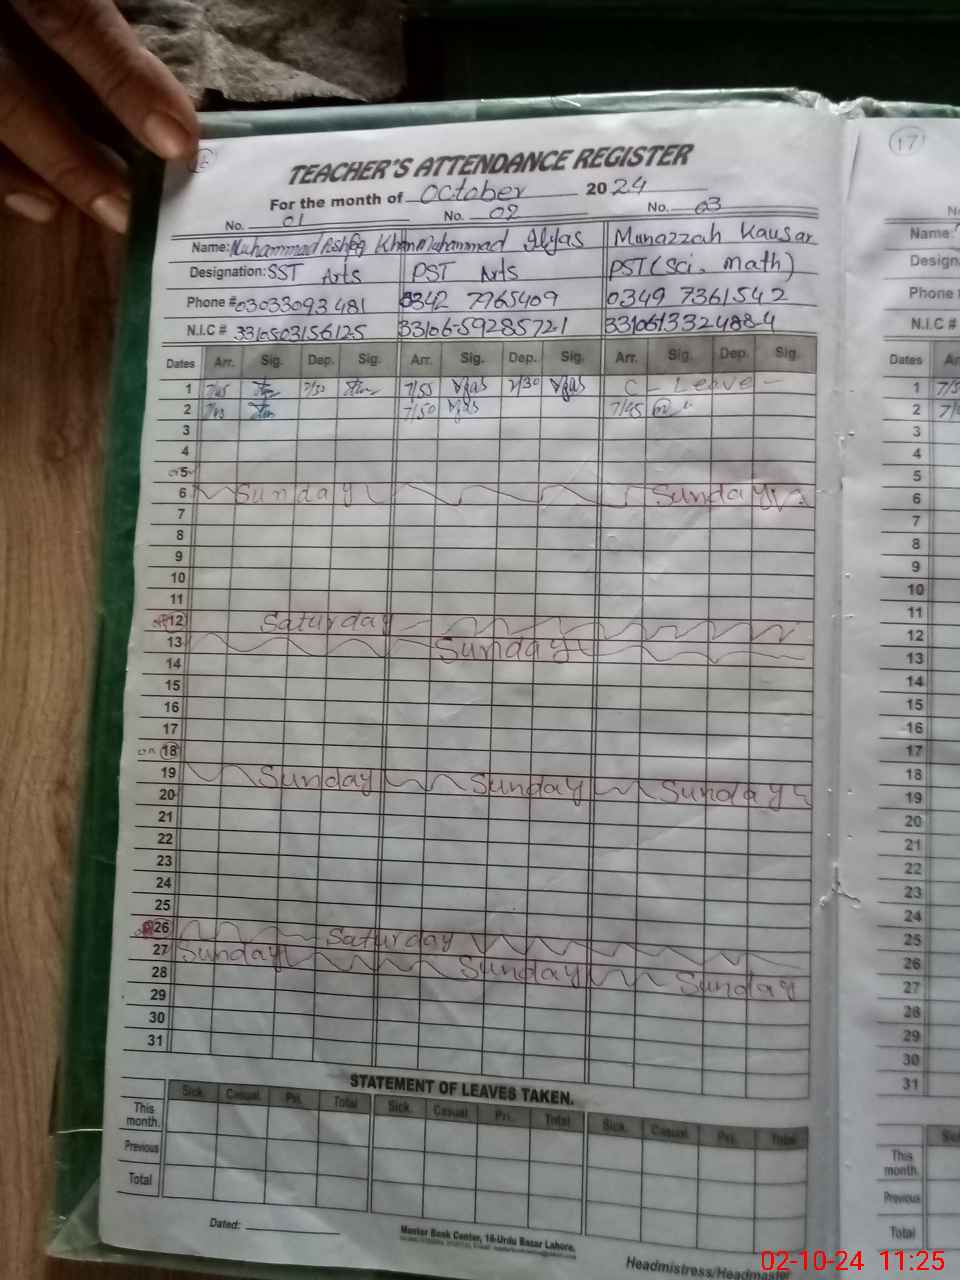 17
TEACHER'S ATTENDANCE REGISTER
For the month of October 2024
No. 01 No. 02 No. 03
Name: Muhammad Ashfaq Khan Muhammad Ilyas Munazzah Kausar
Designation: SST Arts PST Arts PST (Sci. math)
Phone # 03033093481 0342 7765409 0349 7361542
N.I.C # 3310503156125 33106-5928572-1 331061332488-4
Dates Arr. Sig. Dep. Sig. Arr. Sig. Dep. Sig. Arr. Sig. Dep. Sig.
1 7/45 7/55 C - Leave -
2 7/50 7/45
3
4
5
6 Sunday Sunday
7
8
9
10
11
12 Saturday
13 Sunday
14
15
16
17
18
19 Sunday Sunday Sunday
20
21
22
23
24
25
26 Saturday
27 Sunday Sunday Sunday
28
29
30
31
STATEMENT OF LEAVES TAKEN.
Sick. Casual. Pri. Total Sick. Casual. Pri. Total Sick. Casual. Pri. Total
This month.
Previous
Total
Dated:
Master Book Center, 16-Urdu Bazar Lahore.
Headmistress/Headmaster
Name:
Phone
N.I.C #
Dates
1
2
3
4
5
6
7
8
9
10
11
12
13
14
15
16
17
18
19
20
21
22
23
24
25
26
27
28
29
30
31
This month.
Previous
Total
02-10-24 11:25